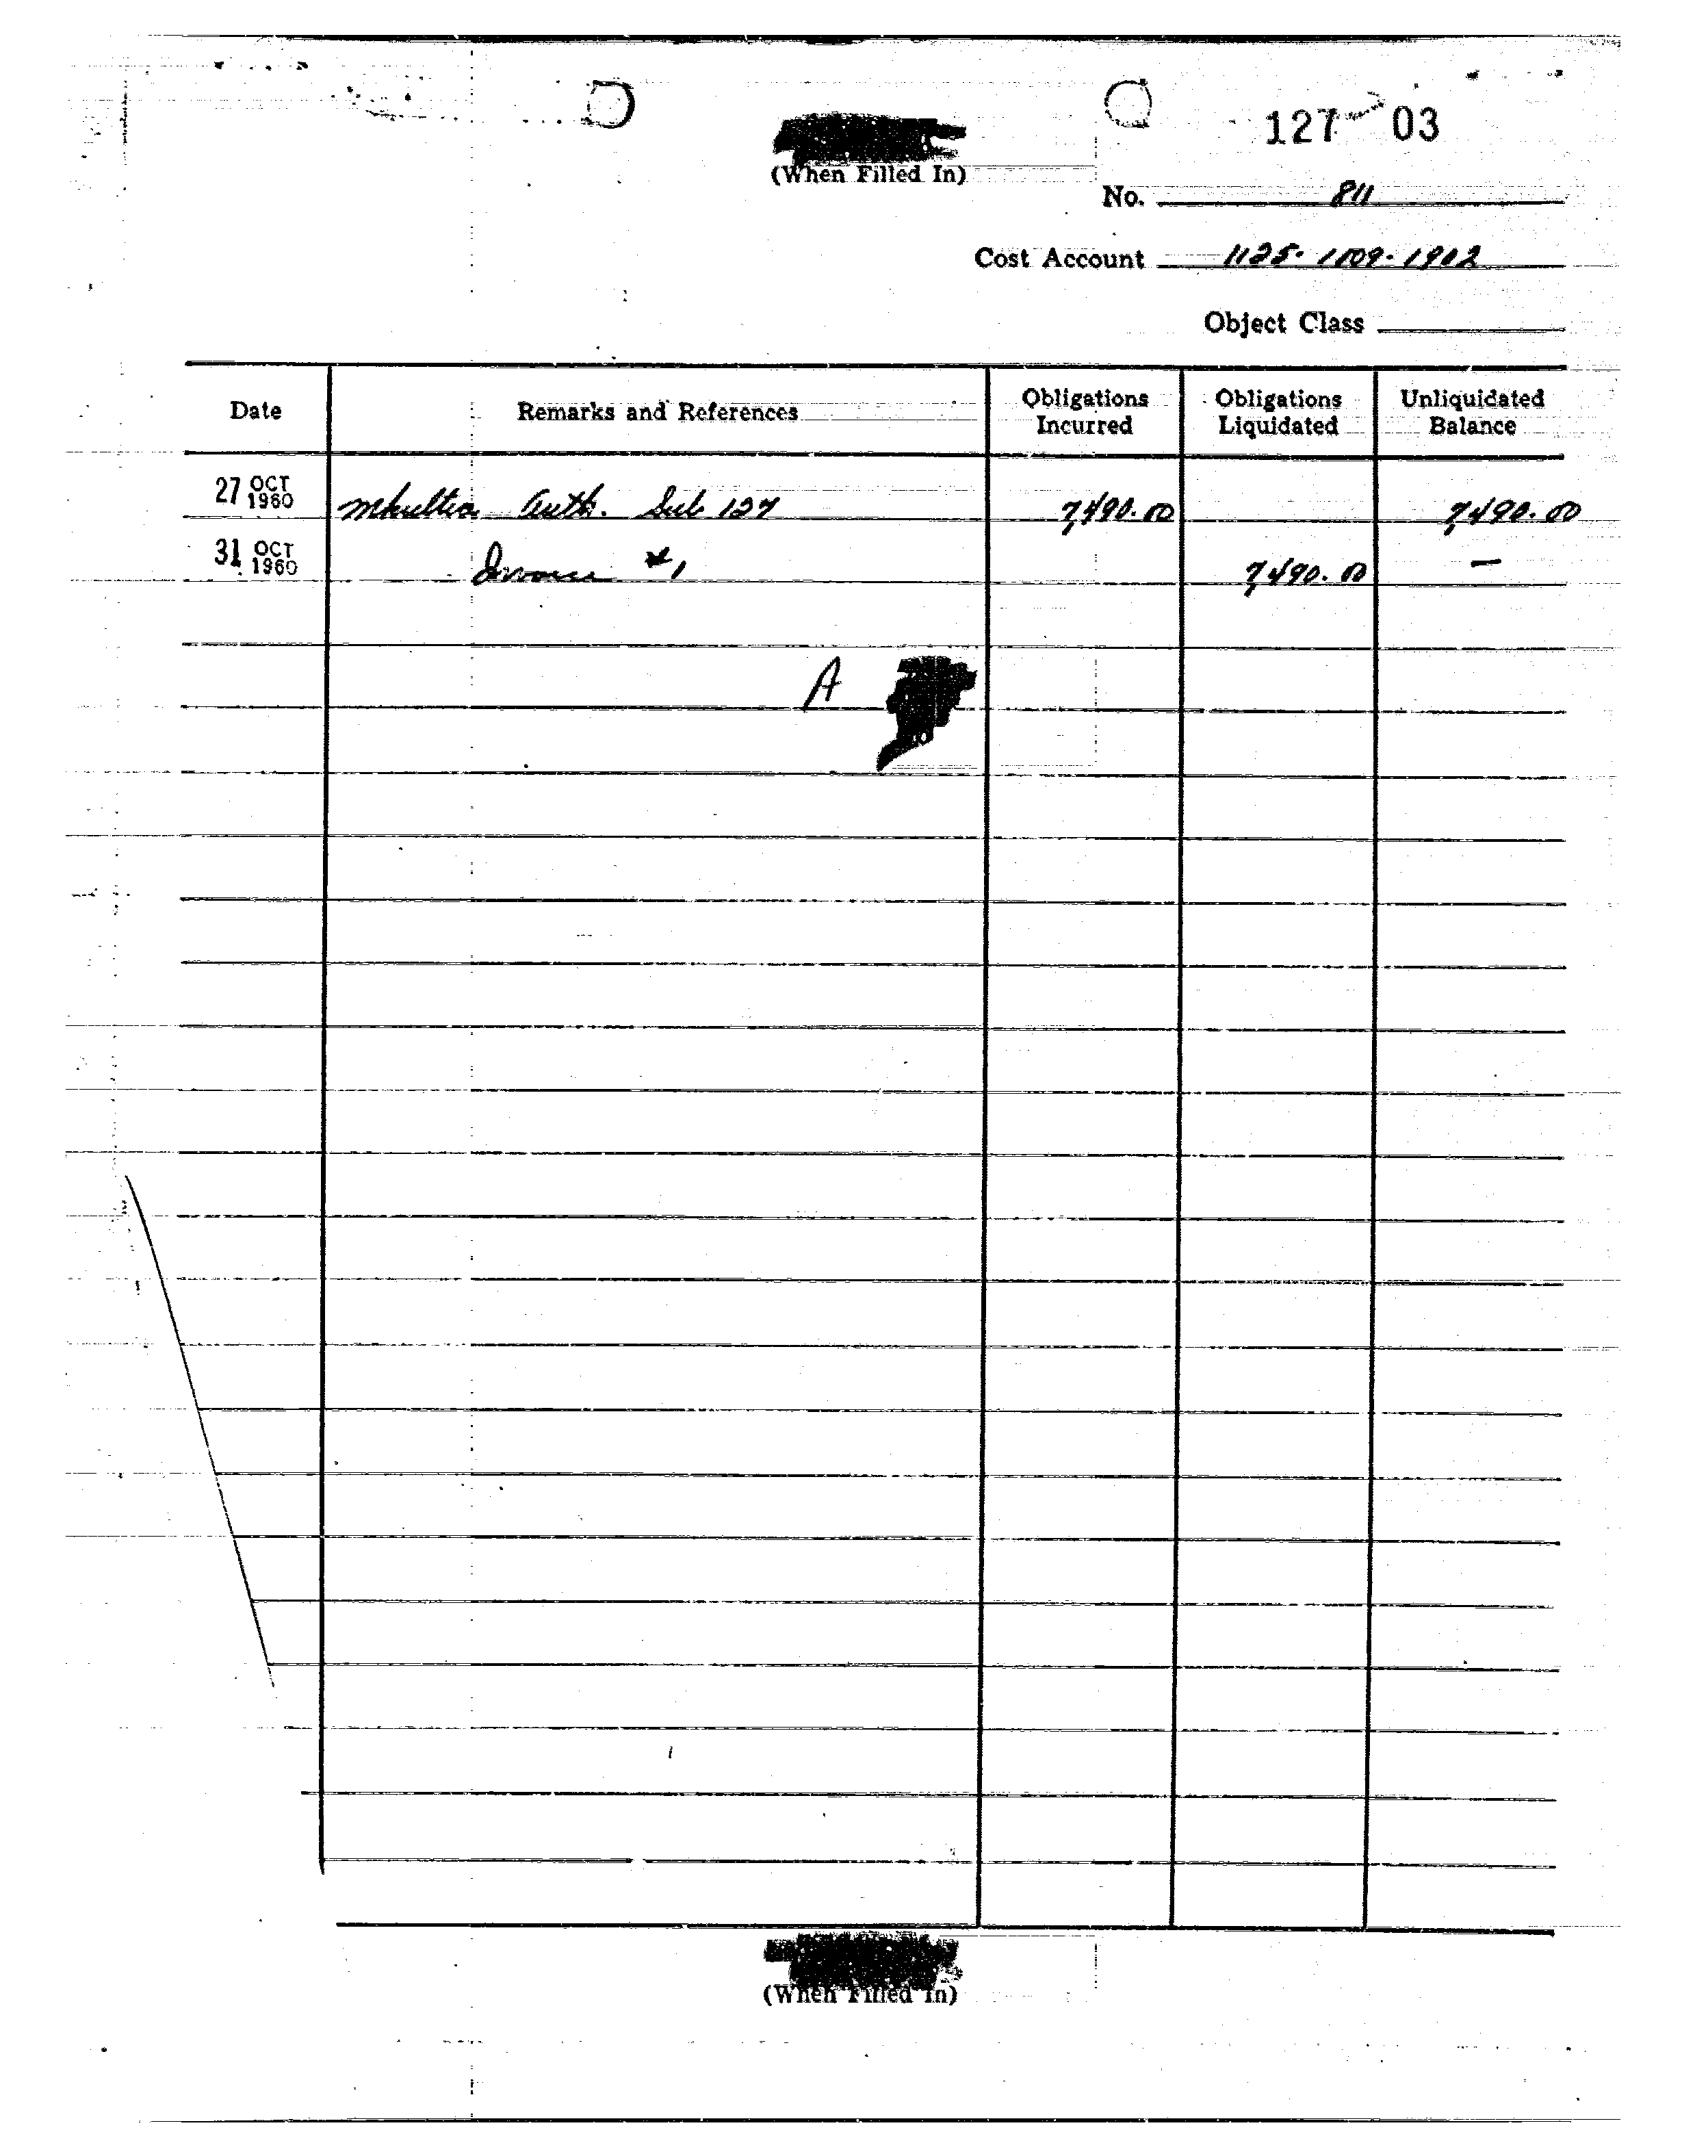 127 03
(When Filled In)
No. 811
Cost Account 1125-1109-1902
Object Class
Date Remarks and References Obligations Incurred Obligations Liquidated Unliquidated Balance
27 OCT 1960 Mkultra Auth. Sub 127 7,490.00 7,490.00
31 OCT 1960 Invoice #1 7,490.00 —
A
(When Filled In)